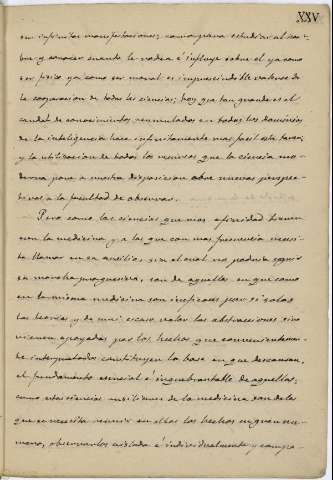 XXV
en infinitas manifestaciones; como para estudiar al hom-
bre y conocer cuanto le rodea é influye sobre él ya como
ser físico ya como ser moral es imprescindible valerse de
la cooperacion de todas las ciencias; hoy que tan grande es el
caudal de conocimientos acumulados en todos los dominios
de la inteligencia hace infinitamente mas facil esta tarea;
y la utilizacion de todos los recursos que la ciencia mo-
derna pone a nuestra disposicion abre nuevas perspec-
tivas a la facultad de observar.
Pero como las ciencias que mas afinidad tienen
con la medicina y a las que con mas frecuencia necesi-
ta llamar en su auxilio, sin el cual no podria seguir
su marcha progresiva, son de aquellas en que como
en la misma medicina son ineficaces por si solas
las teorias y de muy escaso valor las abstracciones sino
vienen apoyadas por los hechos que convenientemen-
te interpretados constituyen la base en que descansan,
el fundamento esencial é inquebrantable de aquellas;
como estas ciencias auxiliares de la medicina son de las
que se necesita reunir en ellas los hechos en gran nu-
mero, observarlos aislada é individualmente y compa-